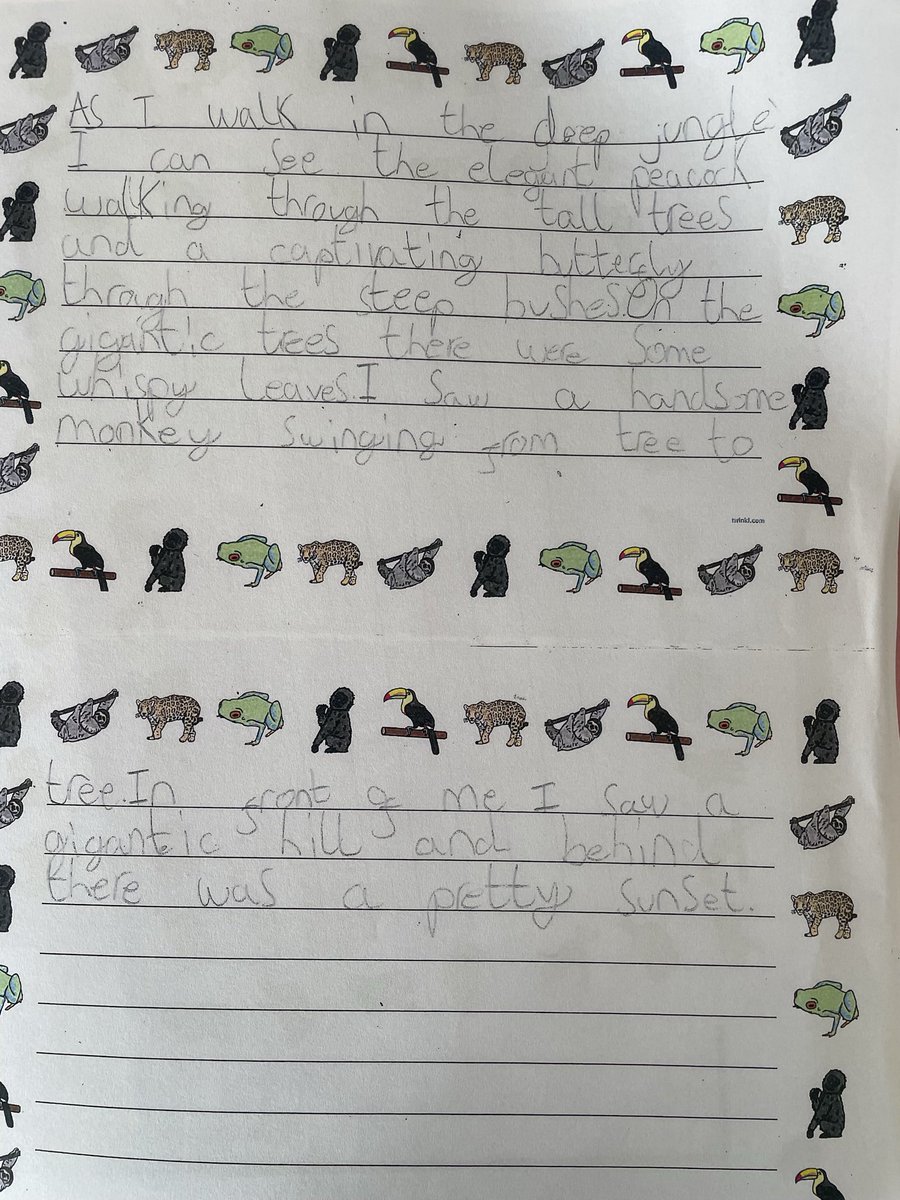 As I walk in the deep jungle,
I can see the elegant peacock
walking through the tall trees
and a captivating butterfly
through the steep bushes.On the
gigantic trees there were some
whispy leaves.I saw a handsome
monkey swinging from tree to
twinkl.com
tree.In front of me I saw a
gigantic hill and behind
there was a pretty sunset.